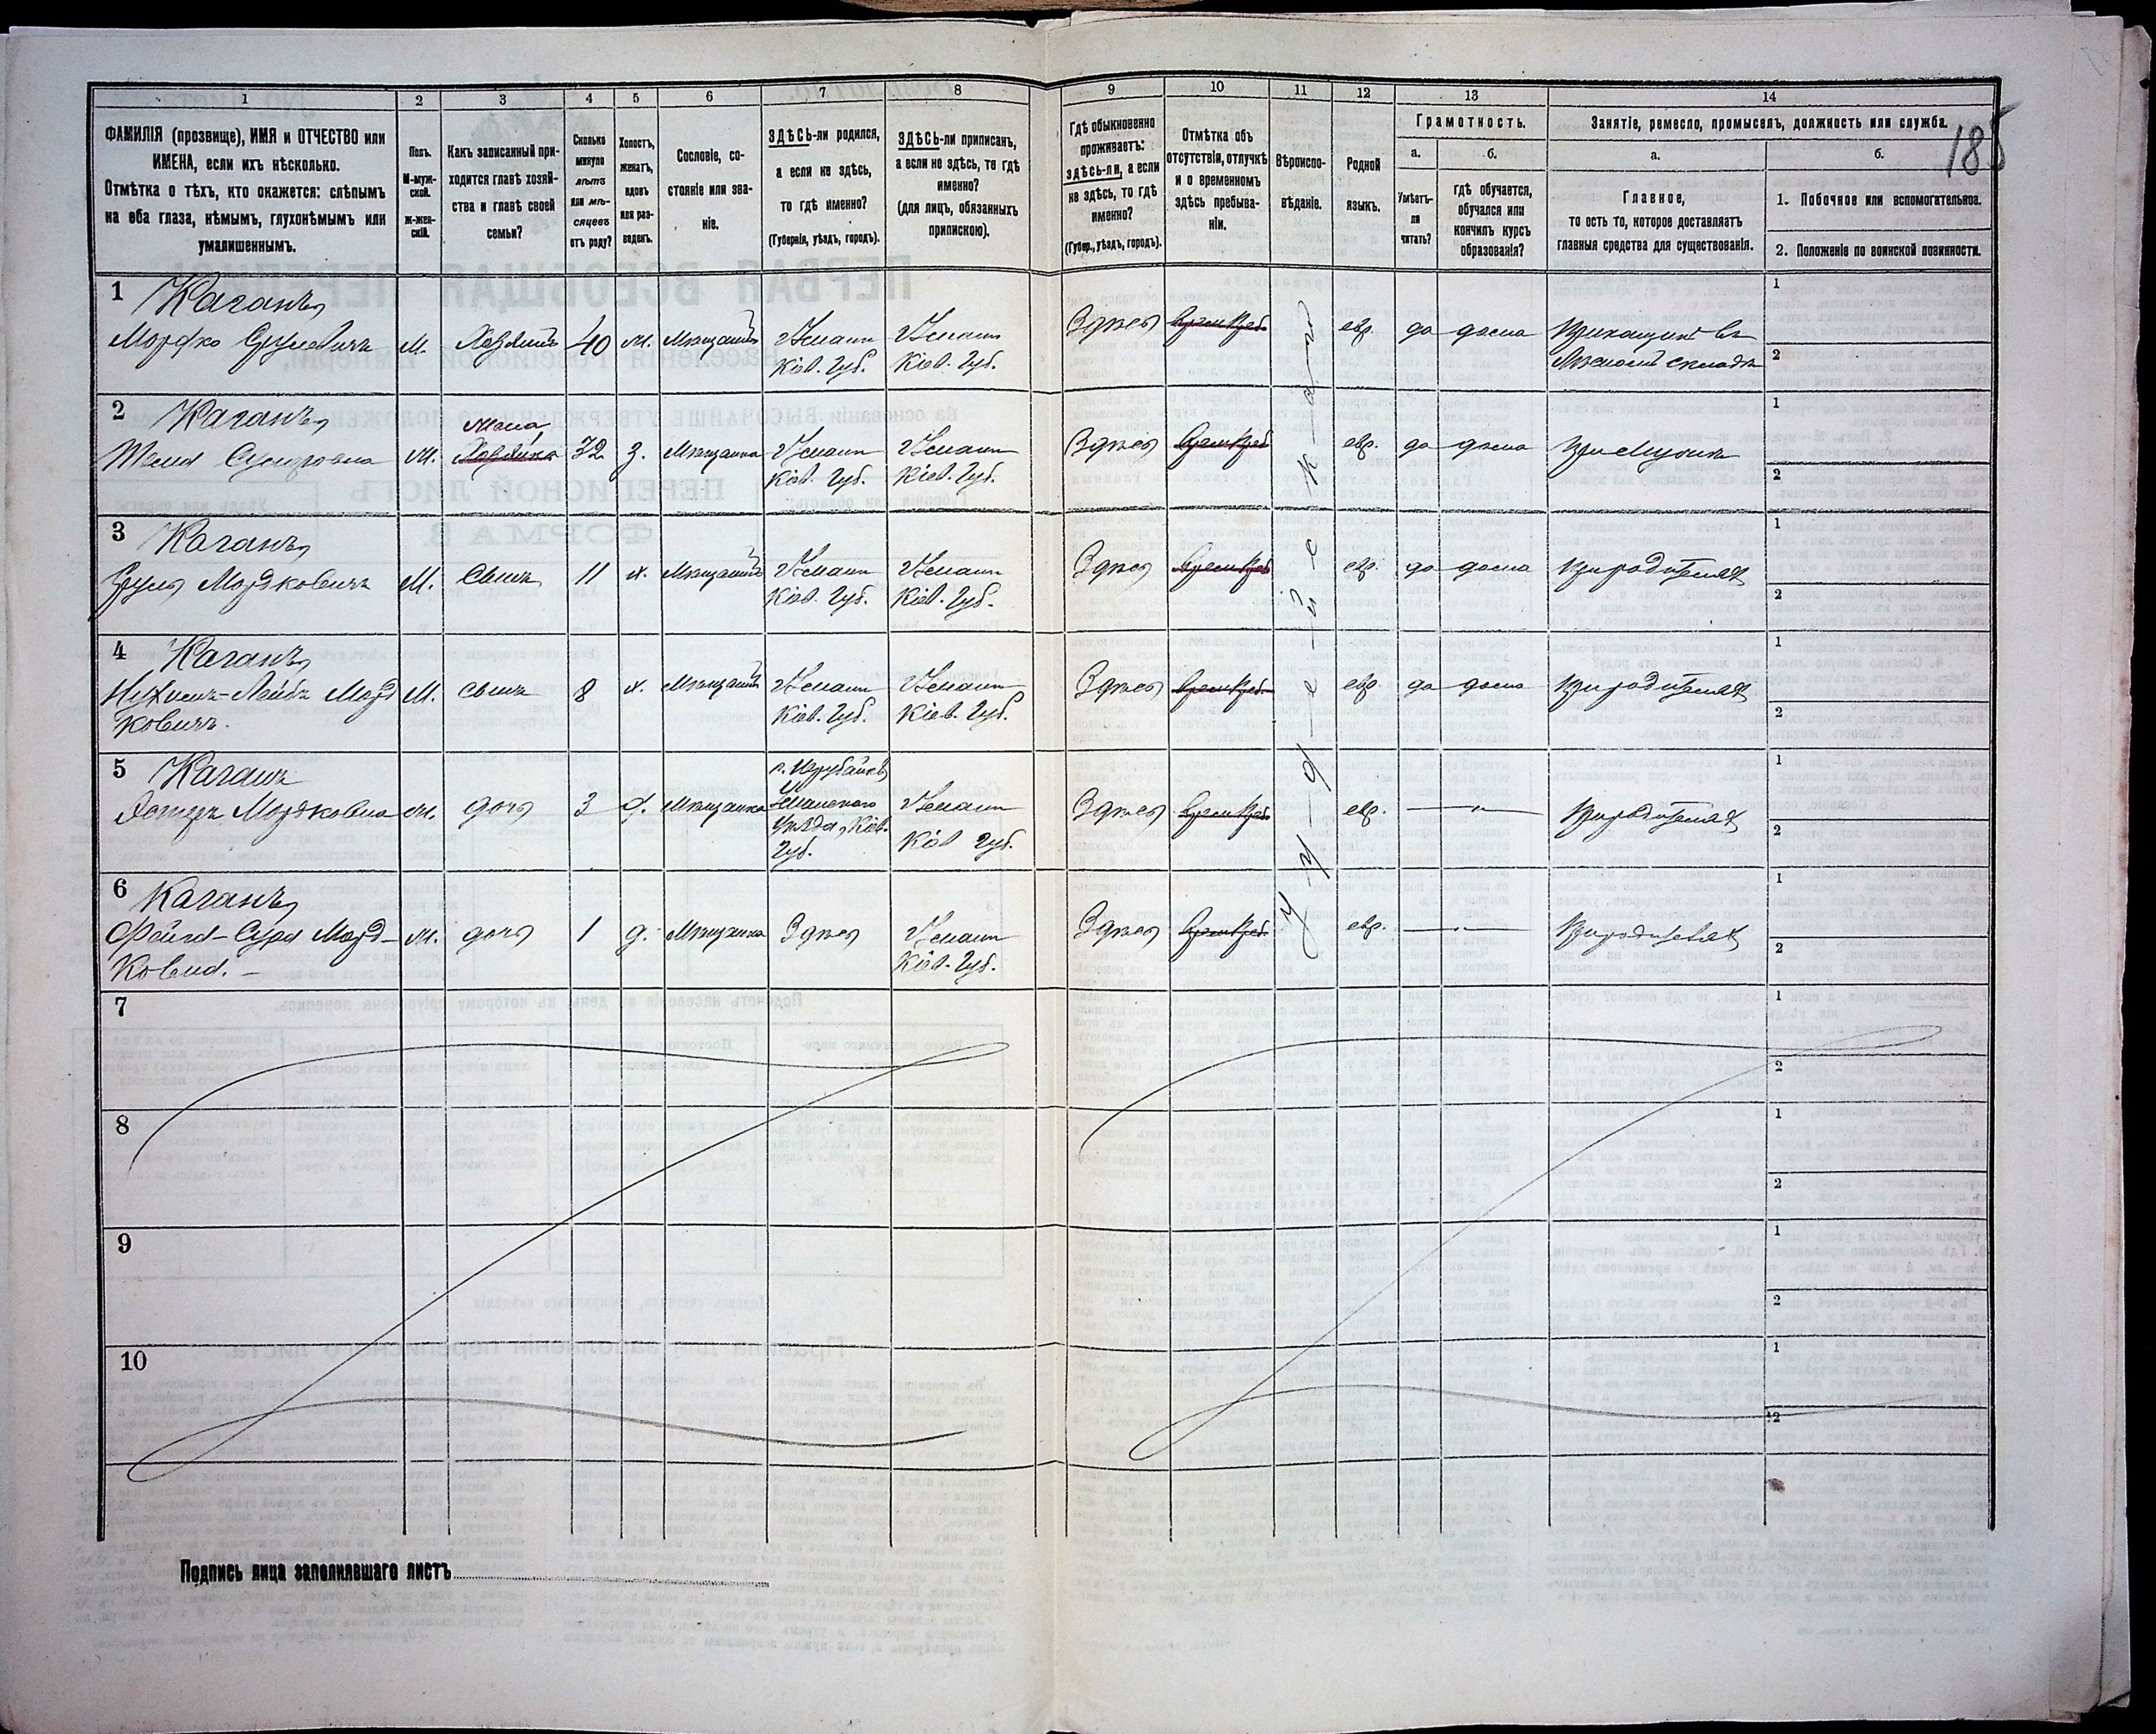 185
1 2 3 4 5 6 7 8 9 10 11 12 13 14
ФАМИЛІЯ (прозвище), ИМЯ и ОТЧЕСТВО или
ИМЕНА, если ихъ нѣсколько.
Отмѣтка о тѣхъ, кто окажется: слѣпымъ
на оба глаза, нѣмымъ, глухонѣмымъ или
умалишеннымъ.
Полъ.
М-муж-
ской.
Ж-жен-
скій.
Какъ записанный при-
ходится главѣ хозяй-
ства и главѣ своей
семьи?
Сколько
минуло
лѣтъ
или мѣ-
сяцевъ
отъ роду?
Холостъ,
женатъ,
вдовъ
или раз-
веденъ.
Сословіе, со-
стояніе или зва-
ніе.
ЗДѢСЬ-ли родился,
а если не здѣсь,
то гдѣ именно?
(Губернія, уѣздъ, городъ).
ЗДѢСЬ-ли приписанъ,
а если не здѣсь, то гдѣ
именно?
(для лицъ, обязанныхъ
припискою).
Гдѣ обыкновенно
проживаетъ:
здѣсь-ли, а если
не здѣсь, то гдѣ
именно?
(Губер., уѣздъ, городъ).
Отмѣтка объ
отсутствіи, отлучкѣ
и о временномъ
здѣсь пребыва-
ніи.
Вѣроиспо-
вѣданіе.
Родной
языкъ.
Грамотность.
а.
Умѣетъ-
ли
читать?
б.
гдѣ обучается,
обучался или
кончилъ курсъ
образованія?
Занятіе, ремесло, промыселъ, должность или служба.
а.
Главное,
то есть то, которое доставляетъ
главныя средства для существованія.
б.
1. Побочное или вспомогательное.
2. Положеніе по воинской повинности.
1 Каганъ,
Мордко Срулевичъ М. Хозяинъ 40 ж. Мѣщанинъ Умани Кіев. Губ. Умани Кіев. Губ. Здѣсь евр. да дома Прикащикъ въ
Лѣсномъ складѣ
1
2
2 Каганъ,
ж. Жена, Хозяйка 32 з. Мѣщанка Умани Кіев. Губ. Умани Кіев. Губ. Здѣсь евр. да дома при Мужѣ
1
2
3 Каганъ,
Сруль Мордковичъ М. Сынъ 11 х. Мѣщанинъ Умани Кіев. Губ. Умани Кіев. Губ. Здѣсь евр. да дома при родителяхъ
1
2
4 Каганъ,
Нухимъ-Лейбъ Морд
ковичъ. М. сынъ 8 х. Мѣщанинъ Умани Кіев. Губ. Умани Кіев. Губ. Здѣсь евр. да дома при родителяхъ
1
2
5 Каганъ
Эстеръ Мордковна ж. дочь 3 д. Мѣщанка
Уманского
Уѣзда, Кіев.
Губ.
Умани Кіев Губ. Здѣсь евр. — " — при родителяхъ
1
2
6 Каганъ,
Фейга-Сура Морд-
ковна. ж. дочь 1 д. Мѣщанка Здѣсь Умани Кіев. Губ. Здѣсь евр. — " — при родителяхъ
1
2
і у д е й с к а г о
7
1
2
8
1
2
9
1
2
10
1
2
Подпись лица заполнявшаго листъ